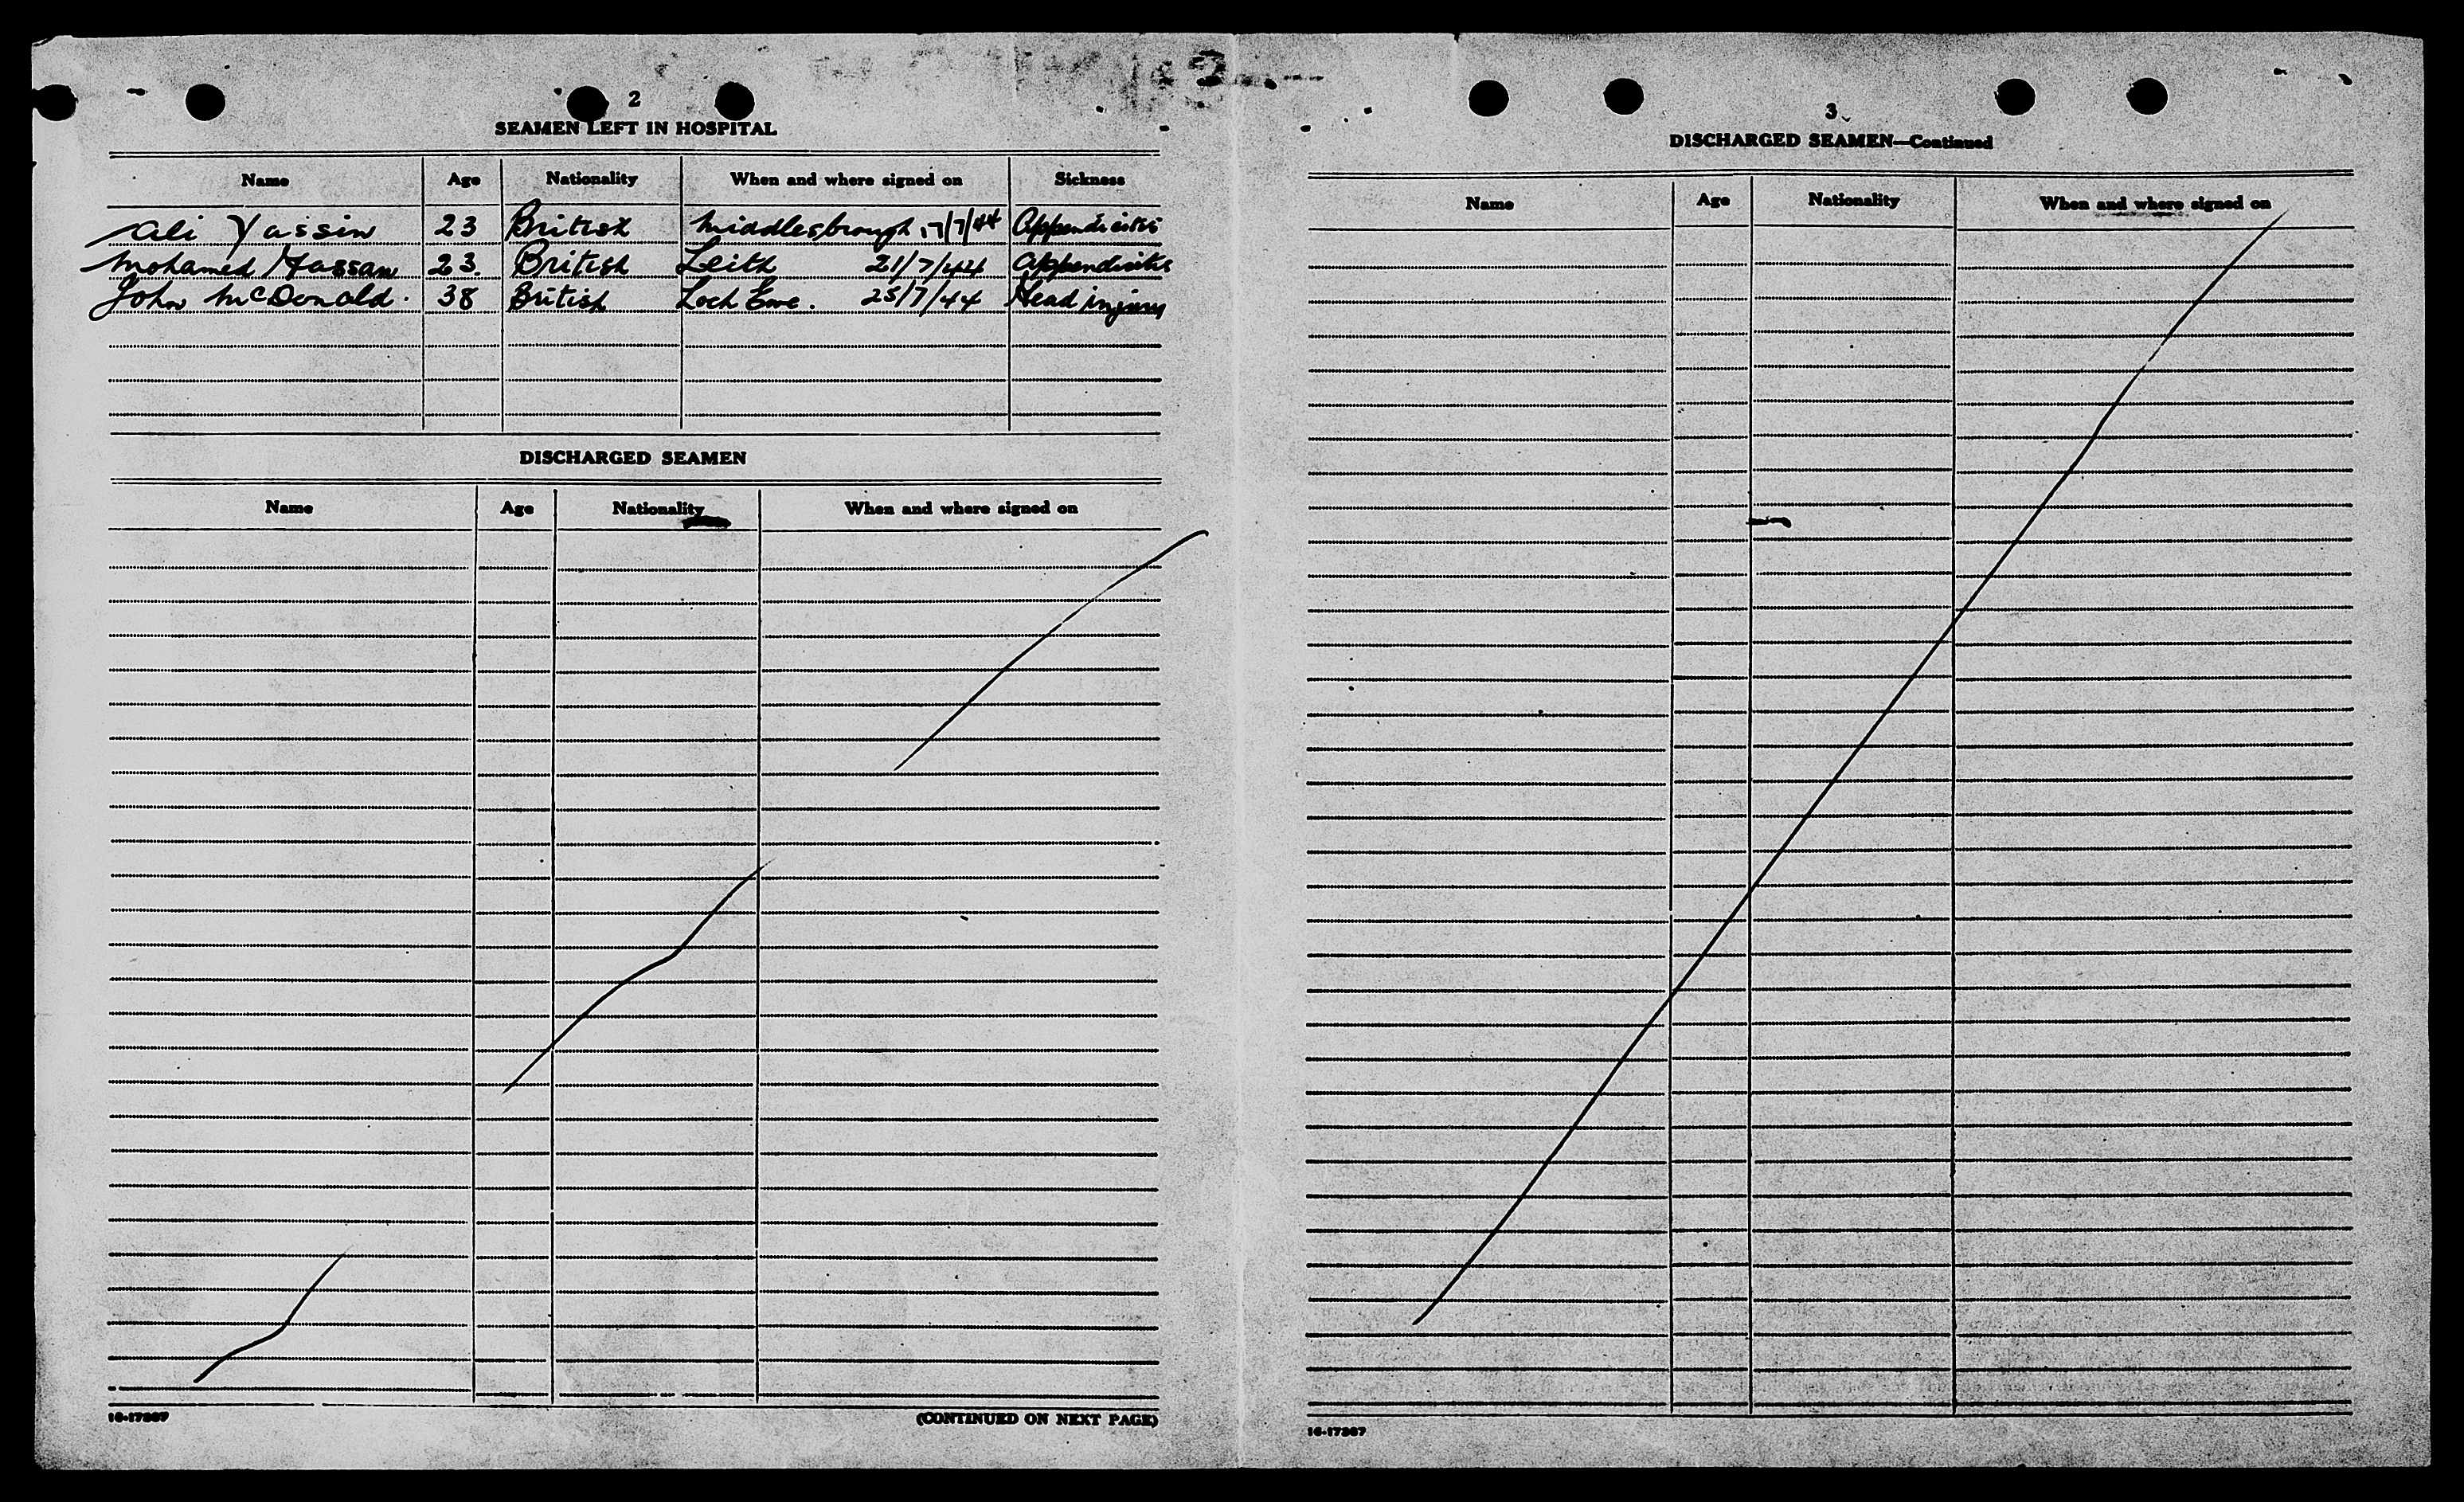 2
SEAMEN LEFT IN HOSPITAL
Name Age Nationality When and where signed on Sickness
Ali Yassin 23 British Middlesbrough 17/7/44 Appendicitis
Mohamed Hassan 23. British Leith 21/7/44 Appendicitis
John McDonald. 38 British Loch Ewe. 25/7/44 Head injury
DISCHARGED SEAMEN
Name Age Nationality When and where signed on
16-17367 (CONTINUED ON NEXT PAGE)
3
DISCHARGED SEAMEN—Continued
Name Age Nationality When and where signed on
16-17367